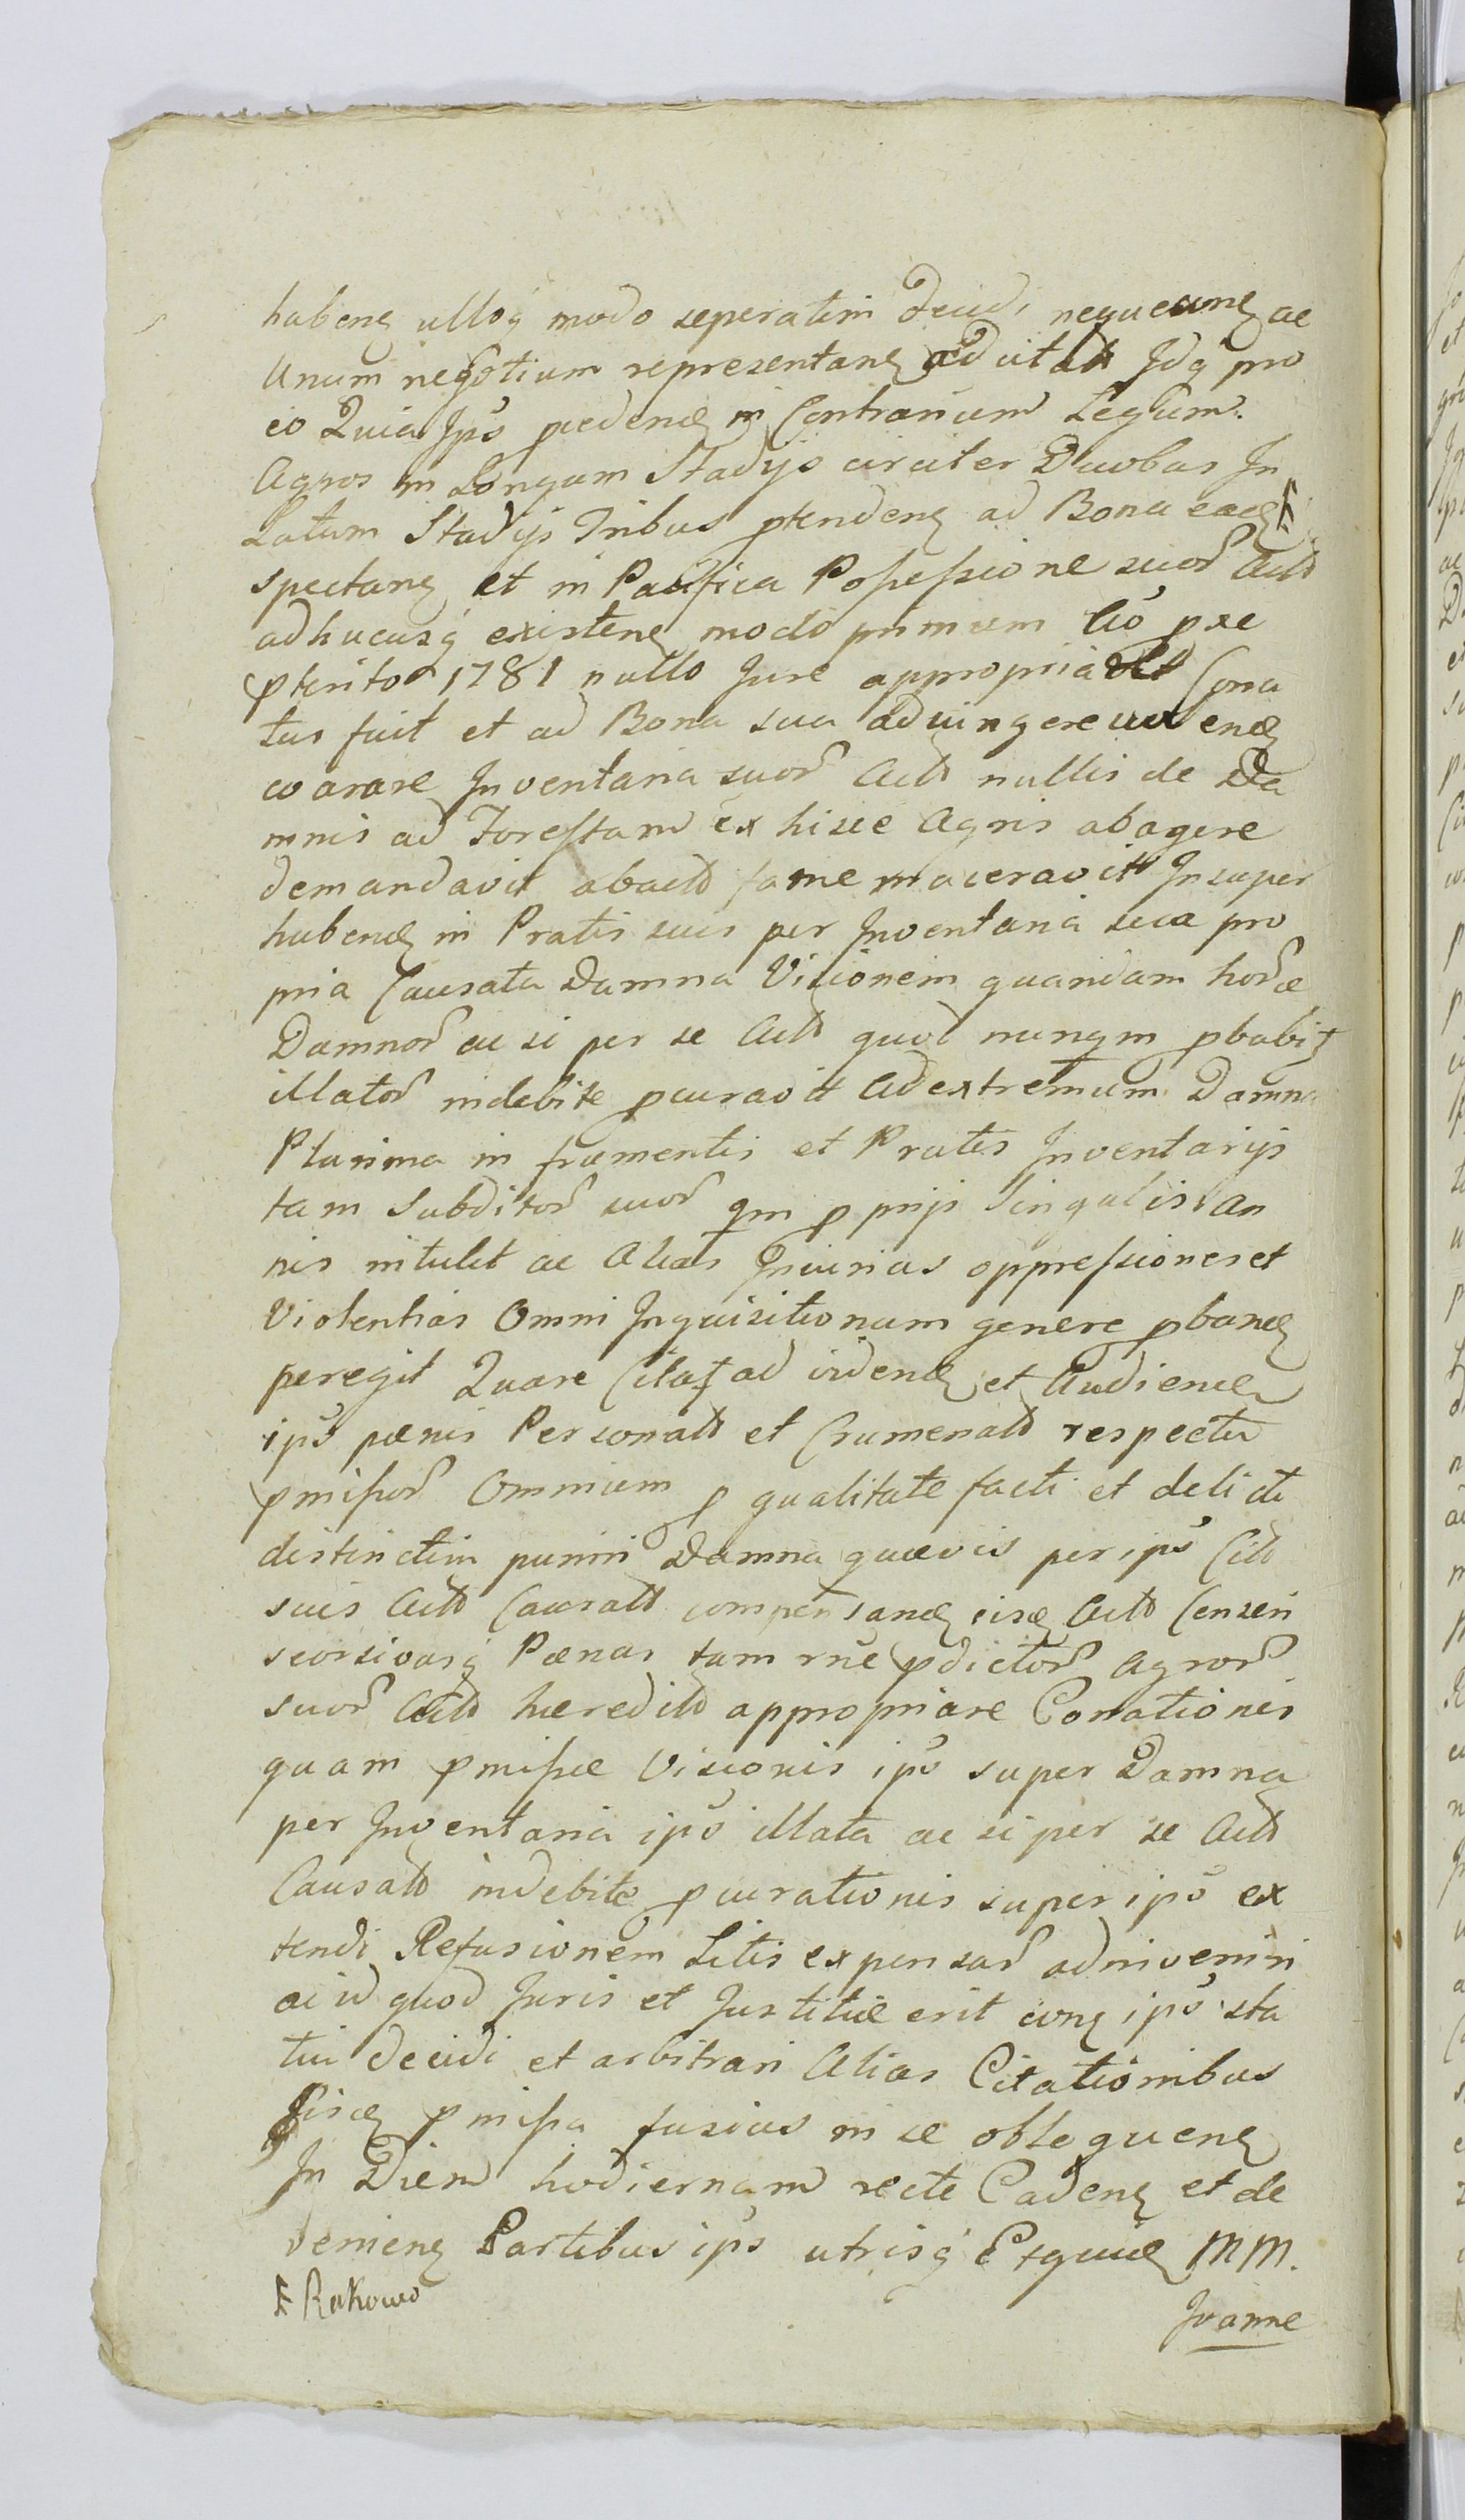 habenꝫ ulloq̨ modo seperatim decidi nequeunꝫ ac
Unum negotium representanꝫ adcitat Jdq̨ pro
eo Quia Jps̃ ꝑcedenꝫ in Contrarium Legum.
Agros in Longum Stadijs circiter Duobus In
Latum Stadijs Tribus ꝑtendenꝫ ad Bona eadꝫ Ⱶ
spectanꝫ et in Pacifica Poſeſsione suoꝝ Actõ
adhucusq̨ existenꝫ modo primum Aõ ꝑxe
ꝑterito 1781 nullo Jure appropriare Cona
tus fuit et ad Bona sua adiungere
coarare Jnventaria suoꝝ Actõ nullis de Da
mnis ad Foreſtam ex hisce Agris abagere
demandavit abactõ fame maceravit Jnsuper
habenꝫ in Pratis suis per Jnventaria sua pro
pria Causata Damna Visionem quandam horꝫ
Damnoꝝ ac si per se Actõ quod nunqm ꝓbabit̃
illatoꝝ indebite ꝓcuravit Ad extremum Damna
Plurima in frumentis et Pratis Jnventarijs
tam Subditoꝝ suoꝝ qm ꝓprijs Singulis An
nis intulit ac Alias Jniurias oppreſsiones et
Violentias Omni Jnquisitionum genere ꝓbanꝫ
peregit Quare Citat̃ ad videnꝫ et Audienꝫ
ips̃ pœnis Personalõ et Crumenalõ respectu
ꝑmiſsoꝝ Omnium ꝓ qualitate facti et delicti
distinctim puniri Damna quævis per ips̃ Citõ
suis Actõ Causatõ compensanꝫ eisꝫ Actõ Censeri
seorsivasq̨ Pœnas tam rñe ꝑdictoꝝ Agroꝝ
suoꝝ Actõ hæreditõ appropriare Conationis
quam ꝑmiſsæ Visionis ips̃ super Damna
per Jnventaria ips̃ illata ac si per se Actõ
Causatõ indebite ꝓcurationis super ips̃ ex
tendi Refusionem Litis expensaꝝ adinveniri
ac id quod Juris et Justitiæ erit conꝫ ips̃ sta
tui decidi et arbitrari Alias Citationibus
Jisdꝫ ꝑmiſsa fusius in se obloquenꝫ
In Diem hodiernam recte Cadenꝫ et de
venienꝫ Partibus ips̃ utrisq̨ MM.
Ⱶ Rakowo
Joanne